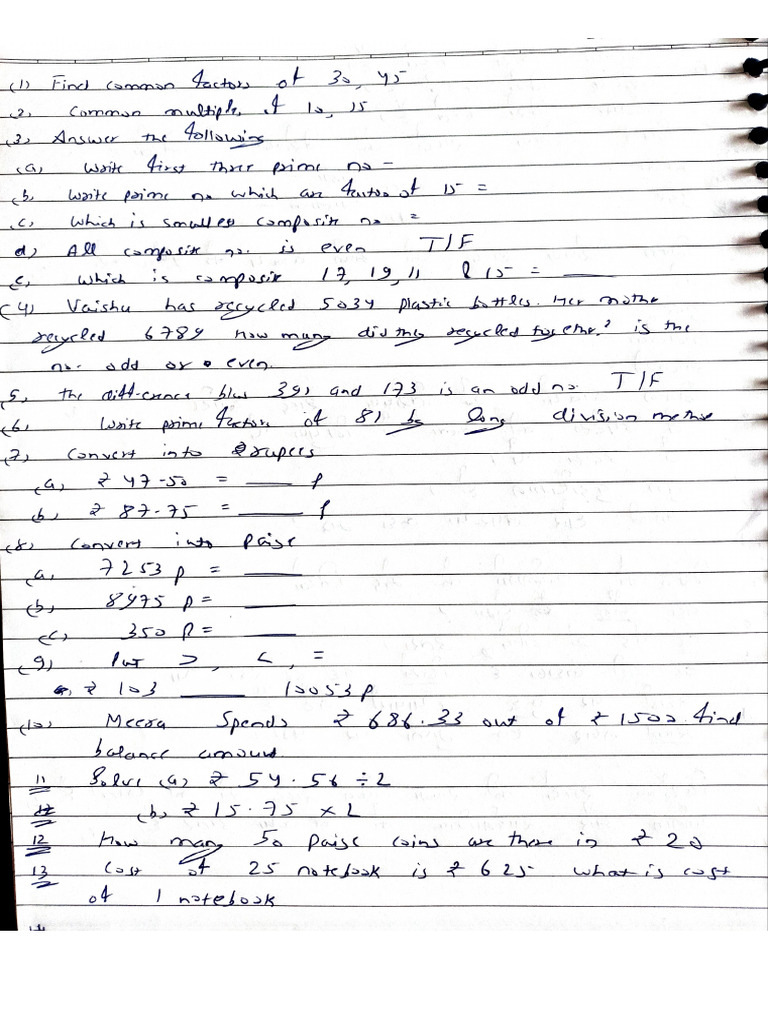 (1) Find common factors of 30, 45
(2) Common multiple of 10, 15
(3) Answer the following
(a) Write first three prime no -
(b) Write prime no which are factor of 15 =
(c) Which is smallest composite no =
d) All composite no. is even T/F
(e) Which is composite 17, 19, 11 & 15 = ____
(4) Vaishu has recycled 5034 plastic bottles. Her mother
recycled 6789 How many did they recycled together? is the
no. odd or even.
(5) The difference b/w 391 and 173 is an odd no T/F
(6) Write prime factors of 81 by long division method
(7) Convert into rupees
(a) ₹ 47-50 = ____ p
(b) ₹ 87-75 = ____ p
(8) Convert into Paise
(a) 7253 p = ____
(b) 8975 p = ____
(c) 350 p = ____
(9) Put >, <, =
a) ₹ 103 ____ 10053 p
(10) Meera Spends ₹ 686.33 out of ₹ 1500 find
balance amount
11 Solve (a) ₹ 54.56 ÷ 2
(b) ₹ 15.75 × 2
12 How many 50 paise coins are there in ₹ 20
13 Cost of 25 notebook is ₹ 625 what is cost
of 1 notebook